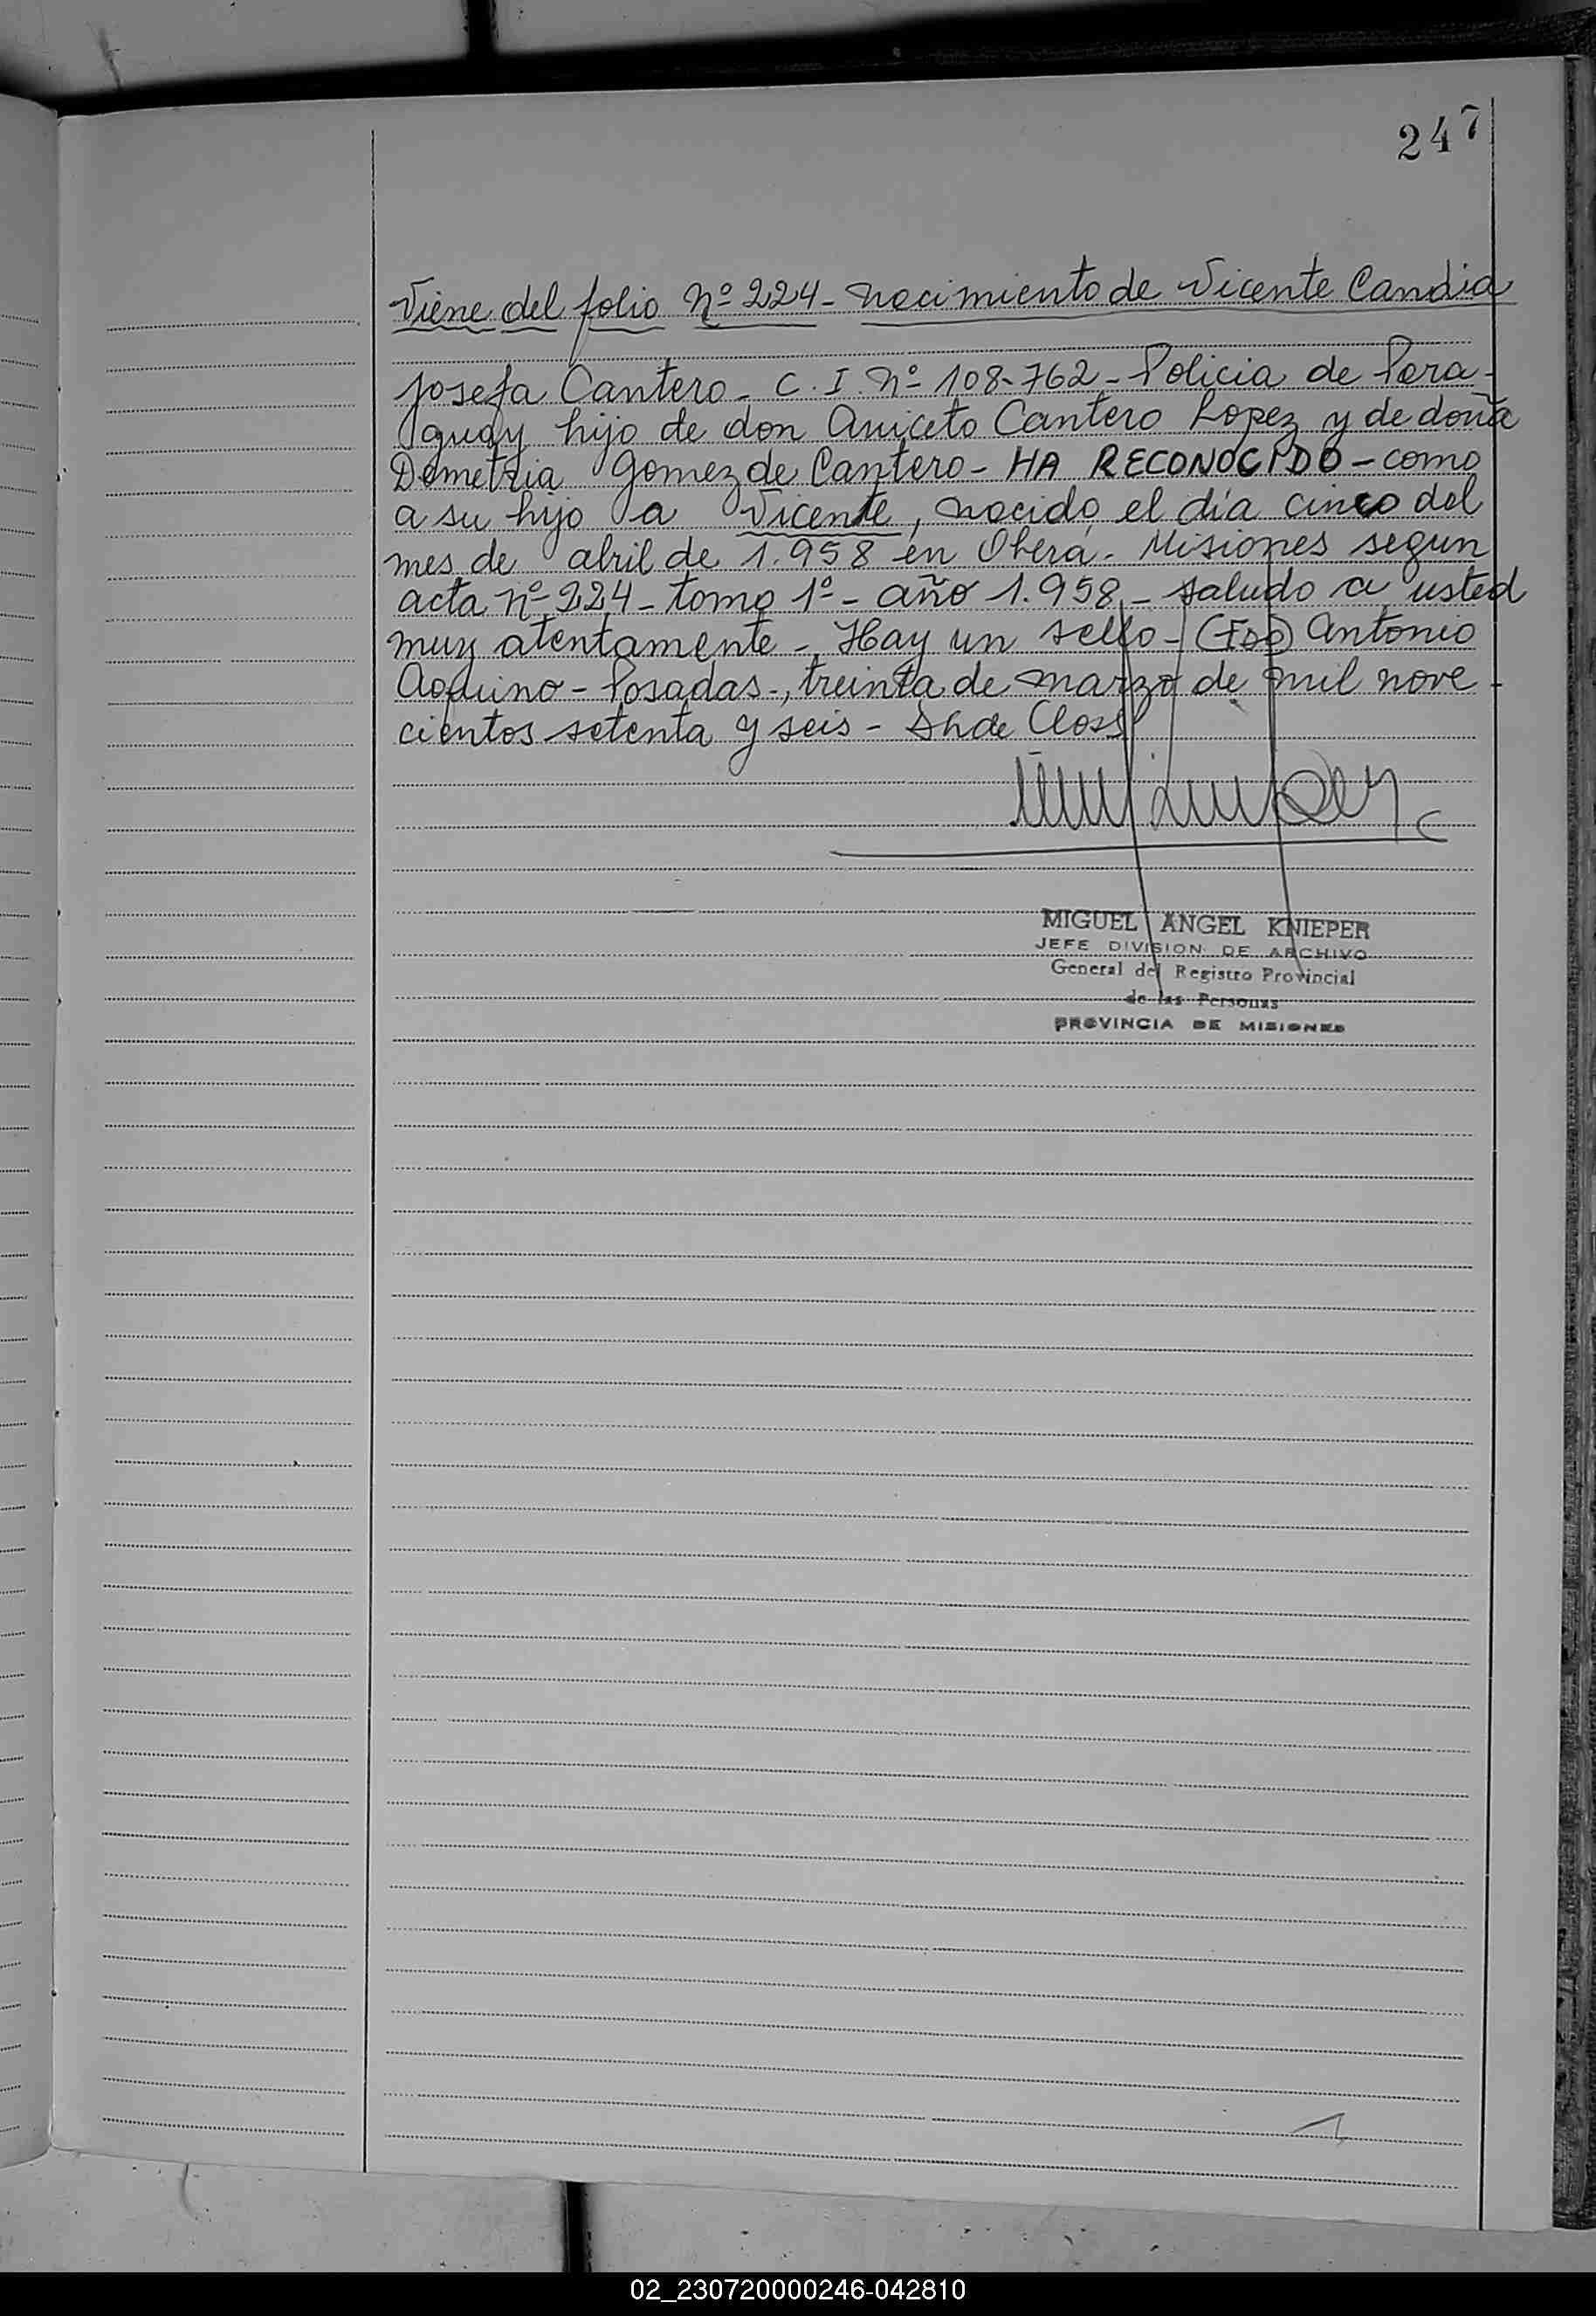 247
Viene del folio Nº 224 - nacimiento de Vicente Candia
Josefa Cantero - C. I. Nº 108-762 - Policia de Para-
guay hijo de don Aniceto Cantero Lopez y de doña
Demetria Gomez de Cantero - HA RECONOCIDO - como
a su hijo a Vicente, nacido el día cinco del
mes de abril de 1.958 en Oberá - Misiones segun
acta nº 224 - tomo 1º - año 1.958 - saludo a usted
muy atentamente - Hay un sello - (Fdo) Antonio
Aquino - Posadas -, treinta de marzo de mil nove -
cientos setenta y seis - de Closs
MIGUEL ANGEL KNIEPER
JEFE DIVISION DE ARCHIVO
General del Registro Provincial
de las Personas
PROVINCIA DE MISIONES
02_230720000246-042810